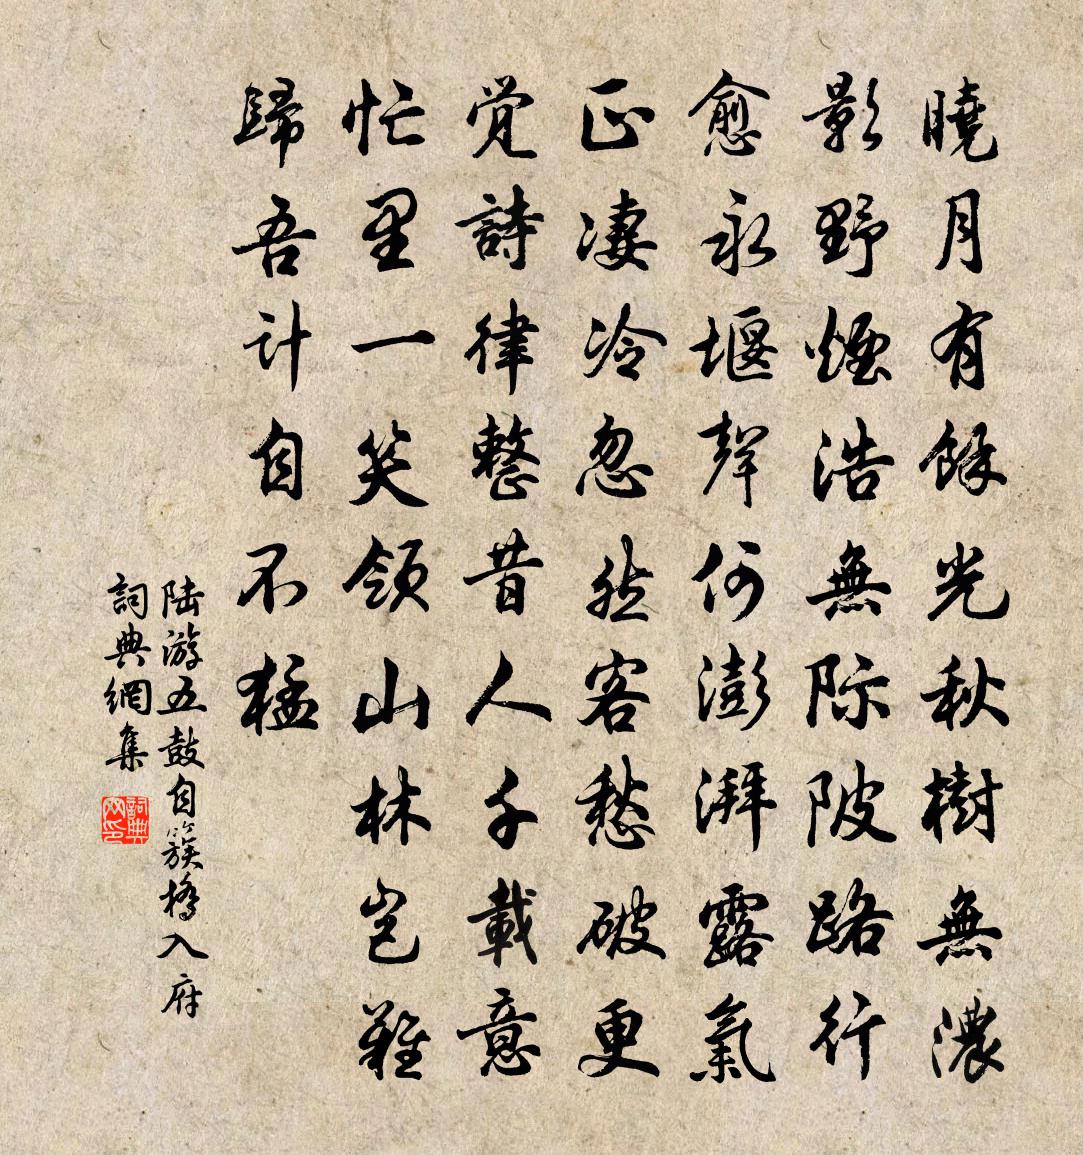 曉月有餘光秋樹無濃
影野煙浩無际陂路行
愈永堰聲何澎湃露氣
正凄冷忽然客愁破更
覚詩律整昔人千載意
忙里一笑領山林岂難
歸吾计自不猛
陆游五鼓自簇橋入府
詞典網集
詞典
网印